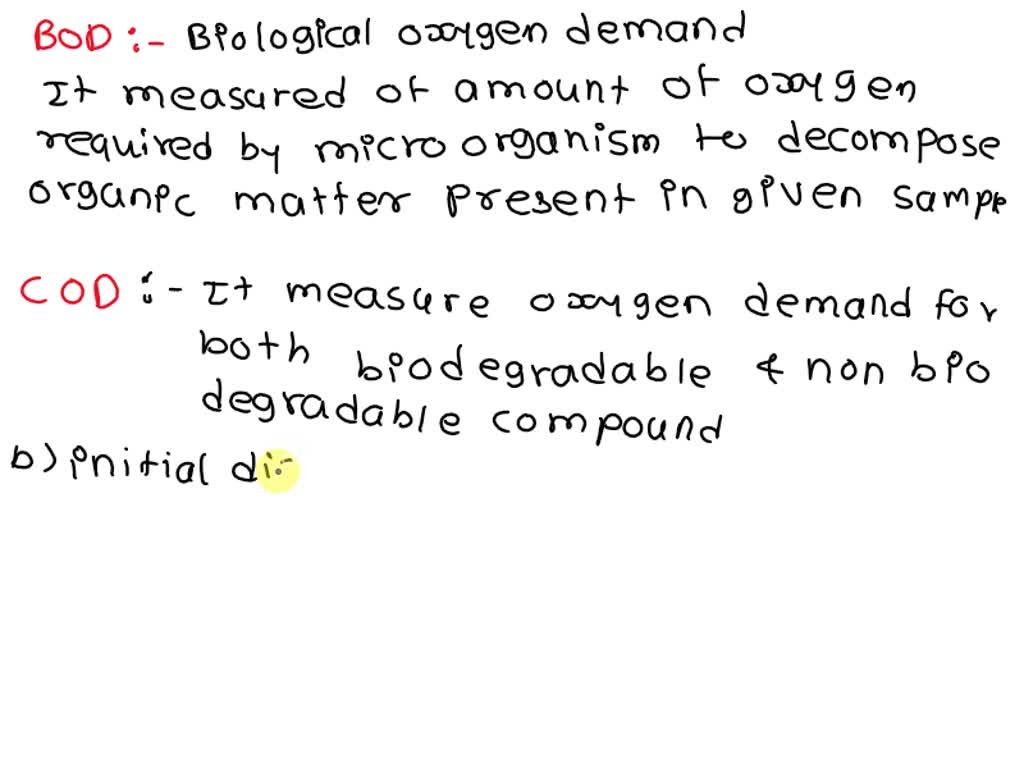 BOD :- Biological oxygen demand
It measured of amount of oxygen
required by micro organism to decompose
organic matter present in given sample
COD :- It measure oxygen demand for
both biodegradable & non bio
degradable compound
b) initial di